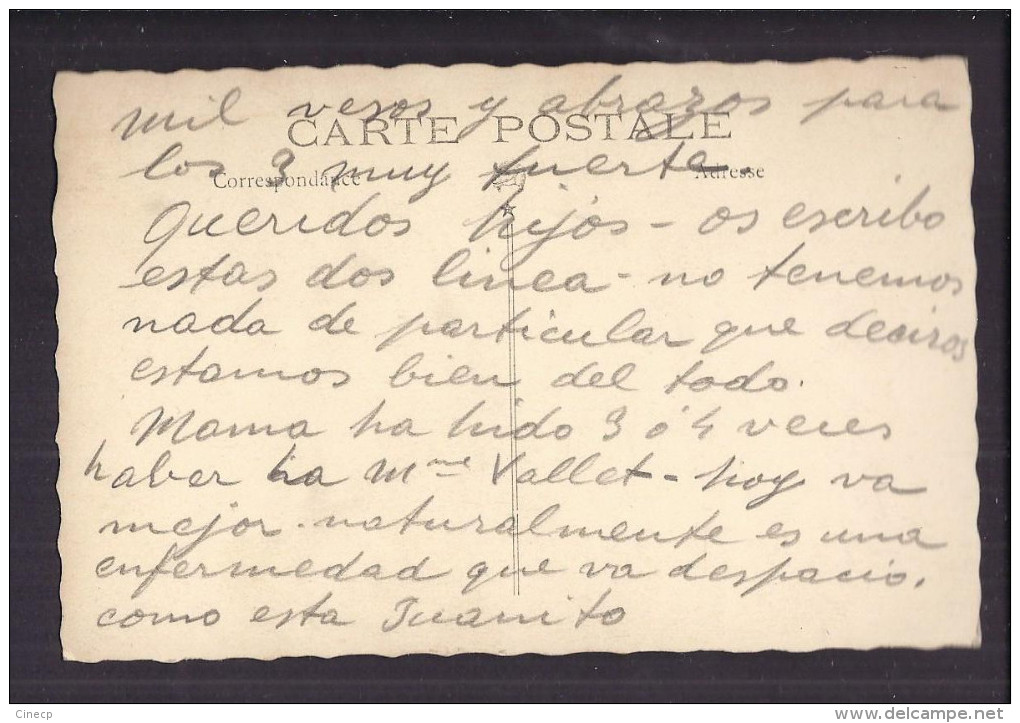 mil vesos y abrazos para
CARTE POSTALE
los 3 muy fuerte
Correspondance
Adresse
queridos hijos - os escribo
estas dos linea - no tenemos
nada de particular que deciros
estamos bien del todo.
Mama ha hido 3 ó 4 veces
haber ha Mme Vallet - hoy va
mejor - naturalmente es una
enfermedad que va despacio.
como esta Juanito
Cinecp
www.delcampe.net